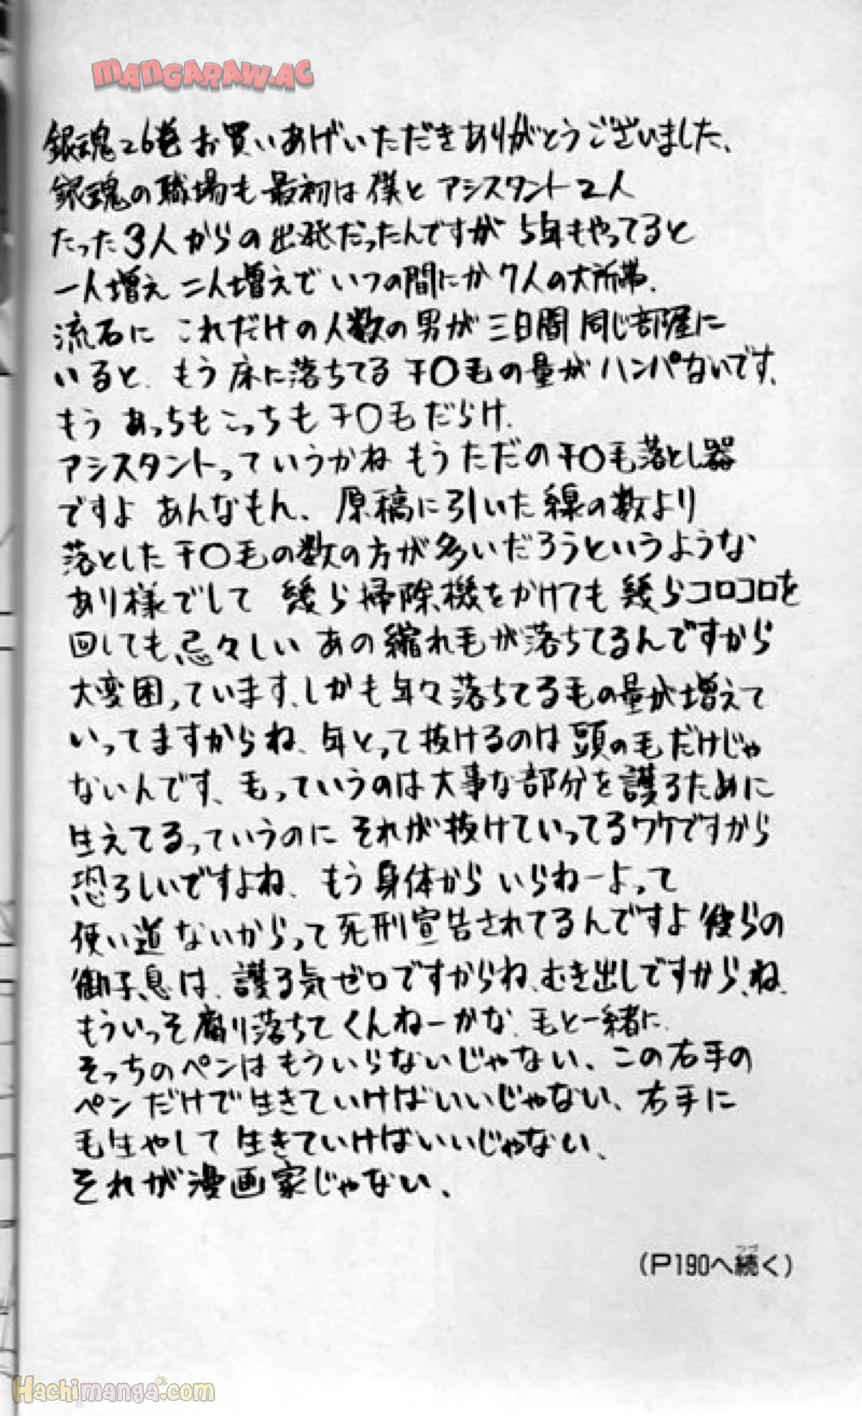 MANGARAW.AC
銀魂26巻 お買いあげいただきありがとうございました、
銀魂の職場も最初は僕と アシスタント2人
たった3人からの出発だったんですが 5年もやってると
一人増え 二人増えで いつの間にか7人の大所帯、
流石に これだけの人数の男が三日間同じ部屋に
いると、もう床に落ちてるチ〇毛の量がハンパないです、
もう あっちもこっちもチ〇毛だらけ、
アシスタントっていうかね もうただのチ〇毛落とし器
ですよ あんなもん、原稿に引いた線の数より
落としたチ〇毛の数の方が多いだろうというような
あり様でして 幾ら掃除機をかけても幾らコロコロを
回しても忌々しい あの縮れ毛が落ちてるんですから
大変困っています、しかも年々落ちてる毛の量が増えて
いってますからね、年とって抜けるのは頭の毛だけじゃ
ないんです、毛っていうのは大事な部分を護るために
生えてるっていうのに それが抜けていってるワケですから
恐ろしいですよね、もう身体から いらねーよって
使い道ないからって死刑宣告されてるんですよ 彼らの
御子息は、護る気ゼロですからね、むき出しですから、ね、
もういっそ腐り落ちてくんねーかな、毛と一緒に、
そっちのペンはもういらないじゃない、この右手の
ペンだけで生きていけばいいじゃない、右手に
毛生やして生きていけばいいじゃない、
それが漫画家じゃない、
(P190へ続く)
つづ
Hachimanga.com